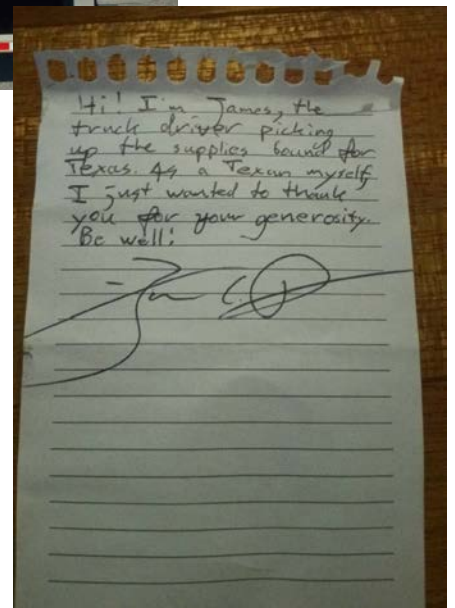 Hi! I'm James, the
truck driver picking
up the supplies bound for
Texas. As a Texan myself,
I just wanted to thank
you for your generosity.
Be well!